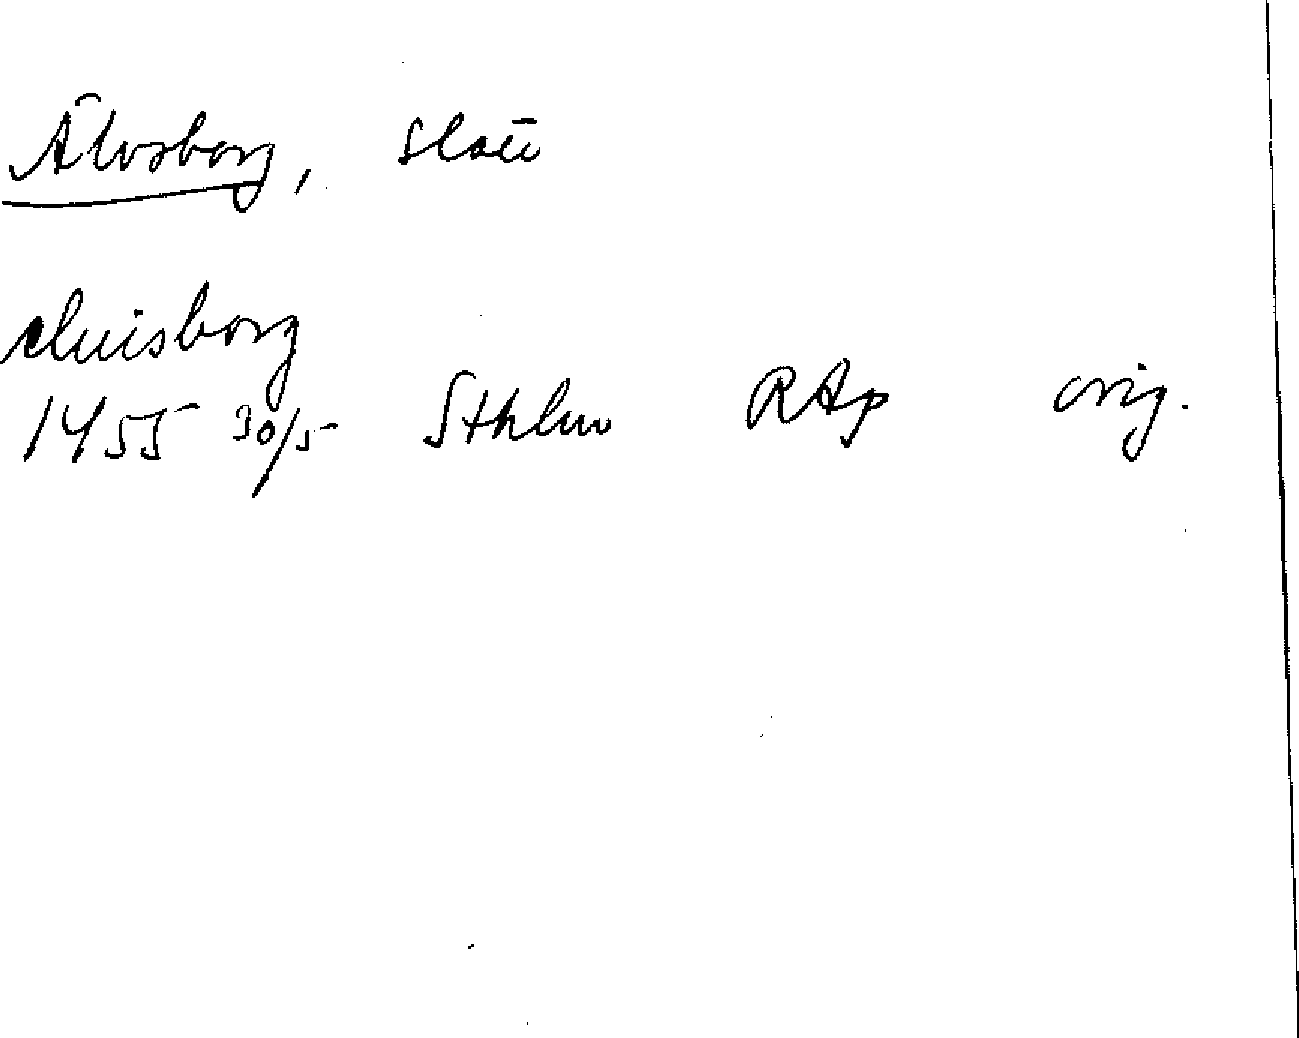 Älvsborg, slott
eluisborg
1455 30/5 Sthlm RAp orig.